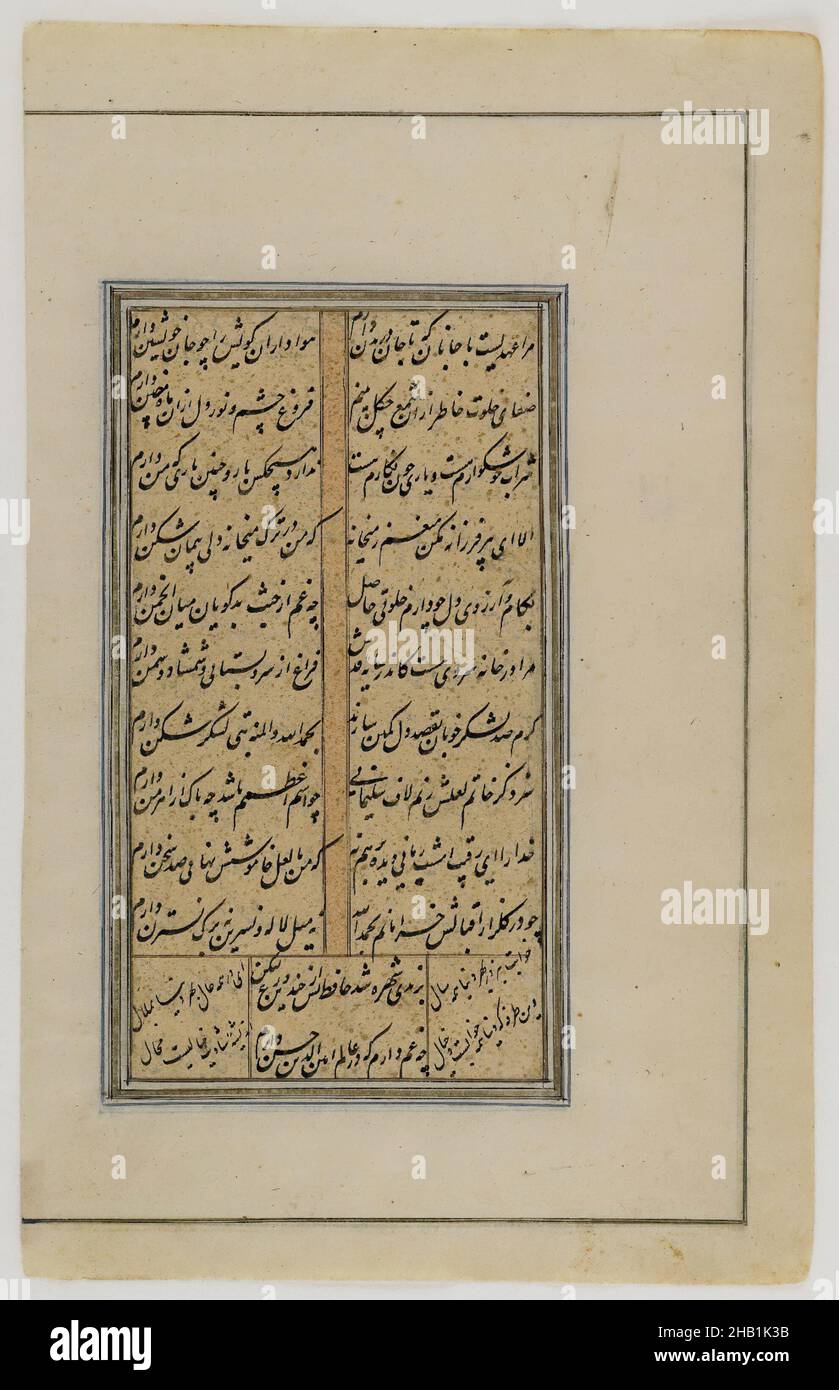 مرا عهدیست با جانان که تا جان در بدن دارم هواداران کویش را چو جان خویشتن دارم
صفای خلوت خاطر از آن شمع چگل بینم فروغ چشم و نور دل از آن ماه ختن دارم
شراب خوشگوارم هست و یاری چون نگارم هست ندارد هیچکس یاری چنین یاری که من دارم
الا ای پیر فرزانه مکن منعم ز میخانه که من در ترک میخانه دلی پیمان شکن دارم
بکام و آرزوی دل چو دارم خلوتی حاصل چه غم از خبث بدگویان میان انجمن دارم
مرا در خانه سروی هست کاندر سایه قدش فراغ از سرو بستانی و شمشاد و سمن دارم
گرم صد لشکر خوبان بقصد دل کمین سازند بحمدالله والمنه بتی لشکر شکن دارم
سزد کز خاتم لعلش زنم لاف سلیمانی چو اسم اعظمم باشد چه باک از اهرمن دارم
خدا را ای رقیب امشب زمانی دیده برهم نه که من با لعل خاموشش نهانی صد سخن دارم
چو در گلزار اقبالش خرامانم بحمدالله نه میل لاله و نسرین نه برگ نسترن دارم
برندی شهره شد حافظ پس از چندین ورع لیکن
چه غم دارم که در عالم امین الدین حسن دارم
alamy
Image ID: 2HB1K3B
www.alamy.com